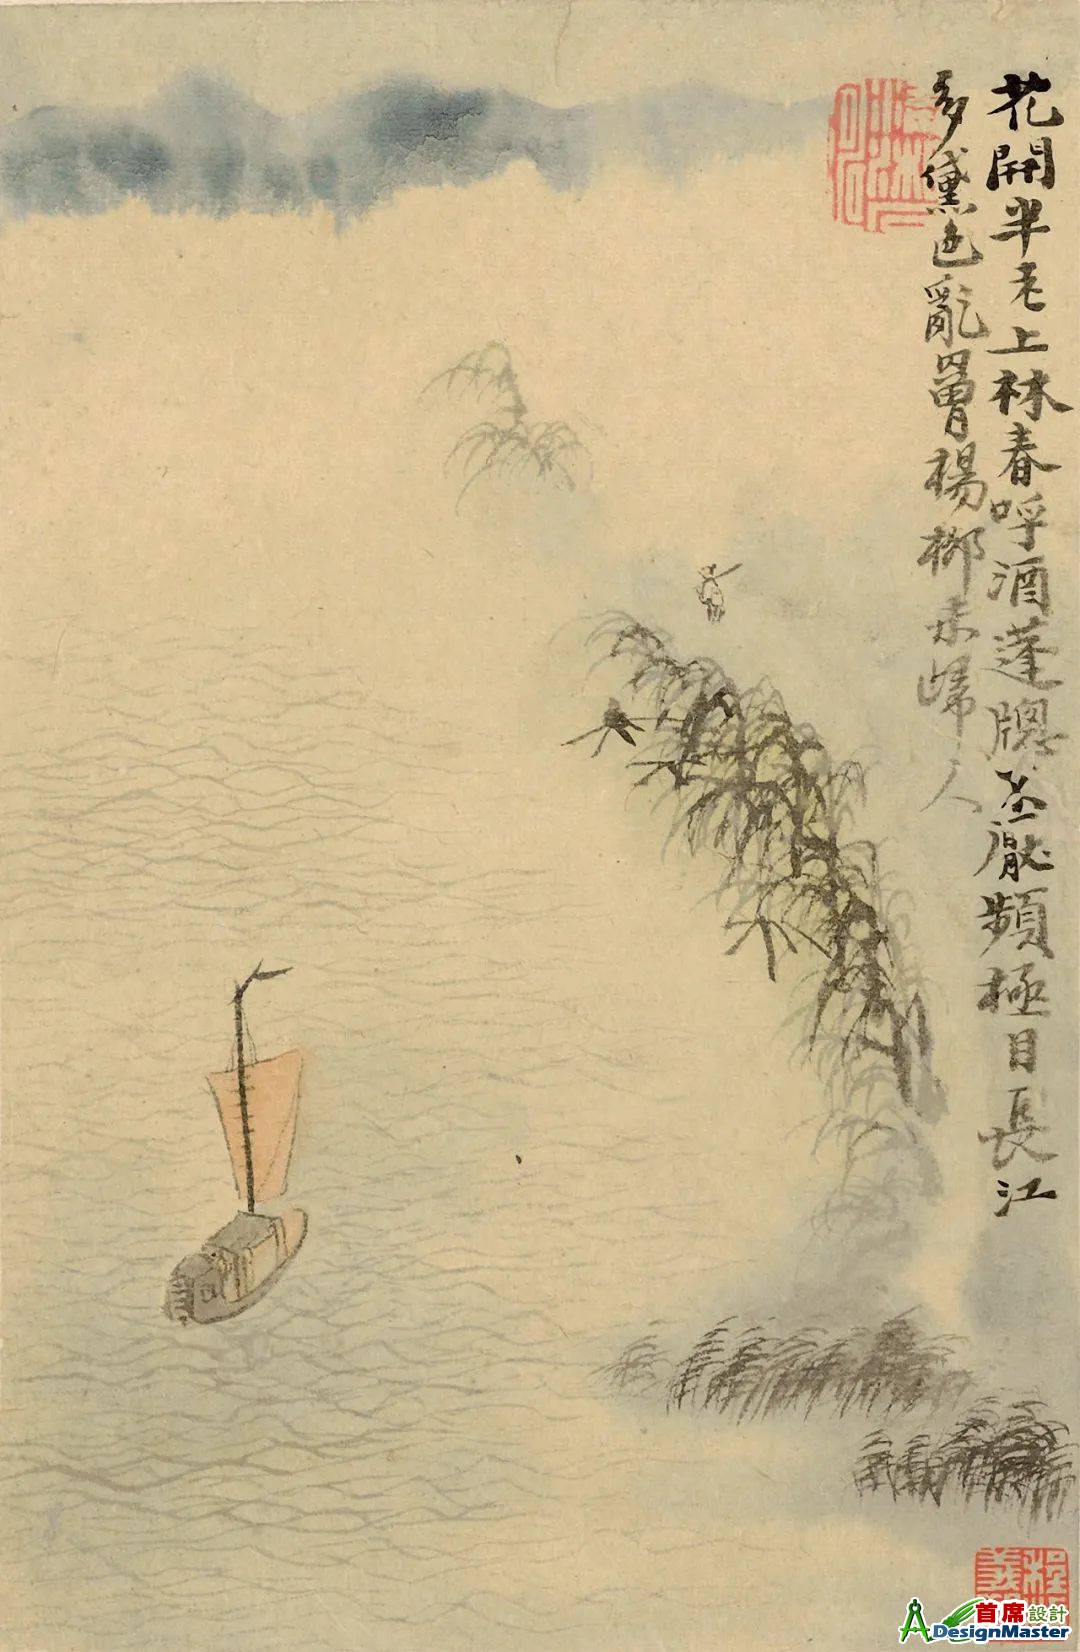 花開半老上林春呼酒蓬牕不厭頻極目長江
多黛色亂罾楊柳未歸人
首席設計
DesignMaster